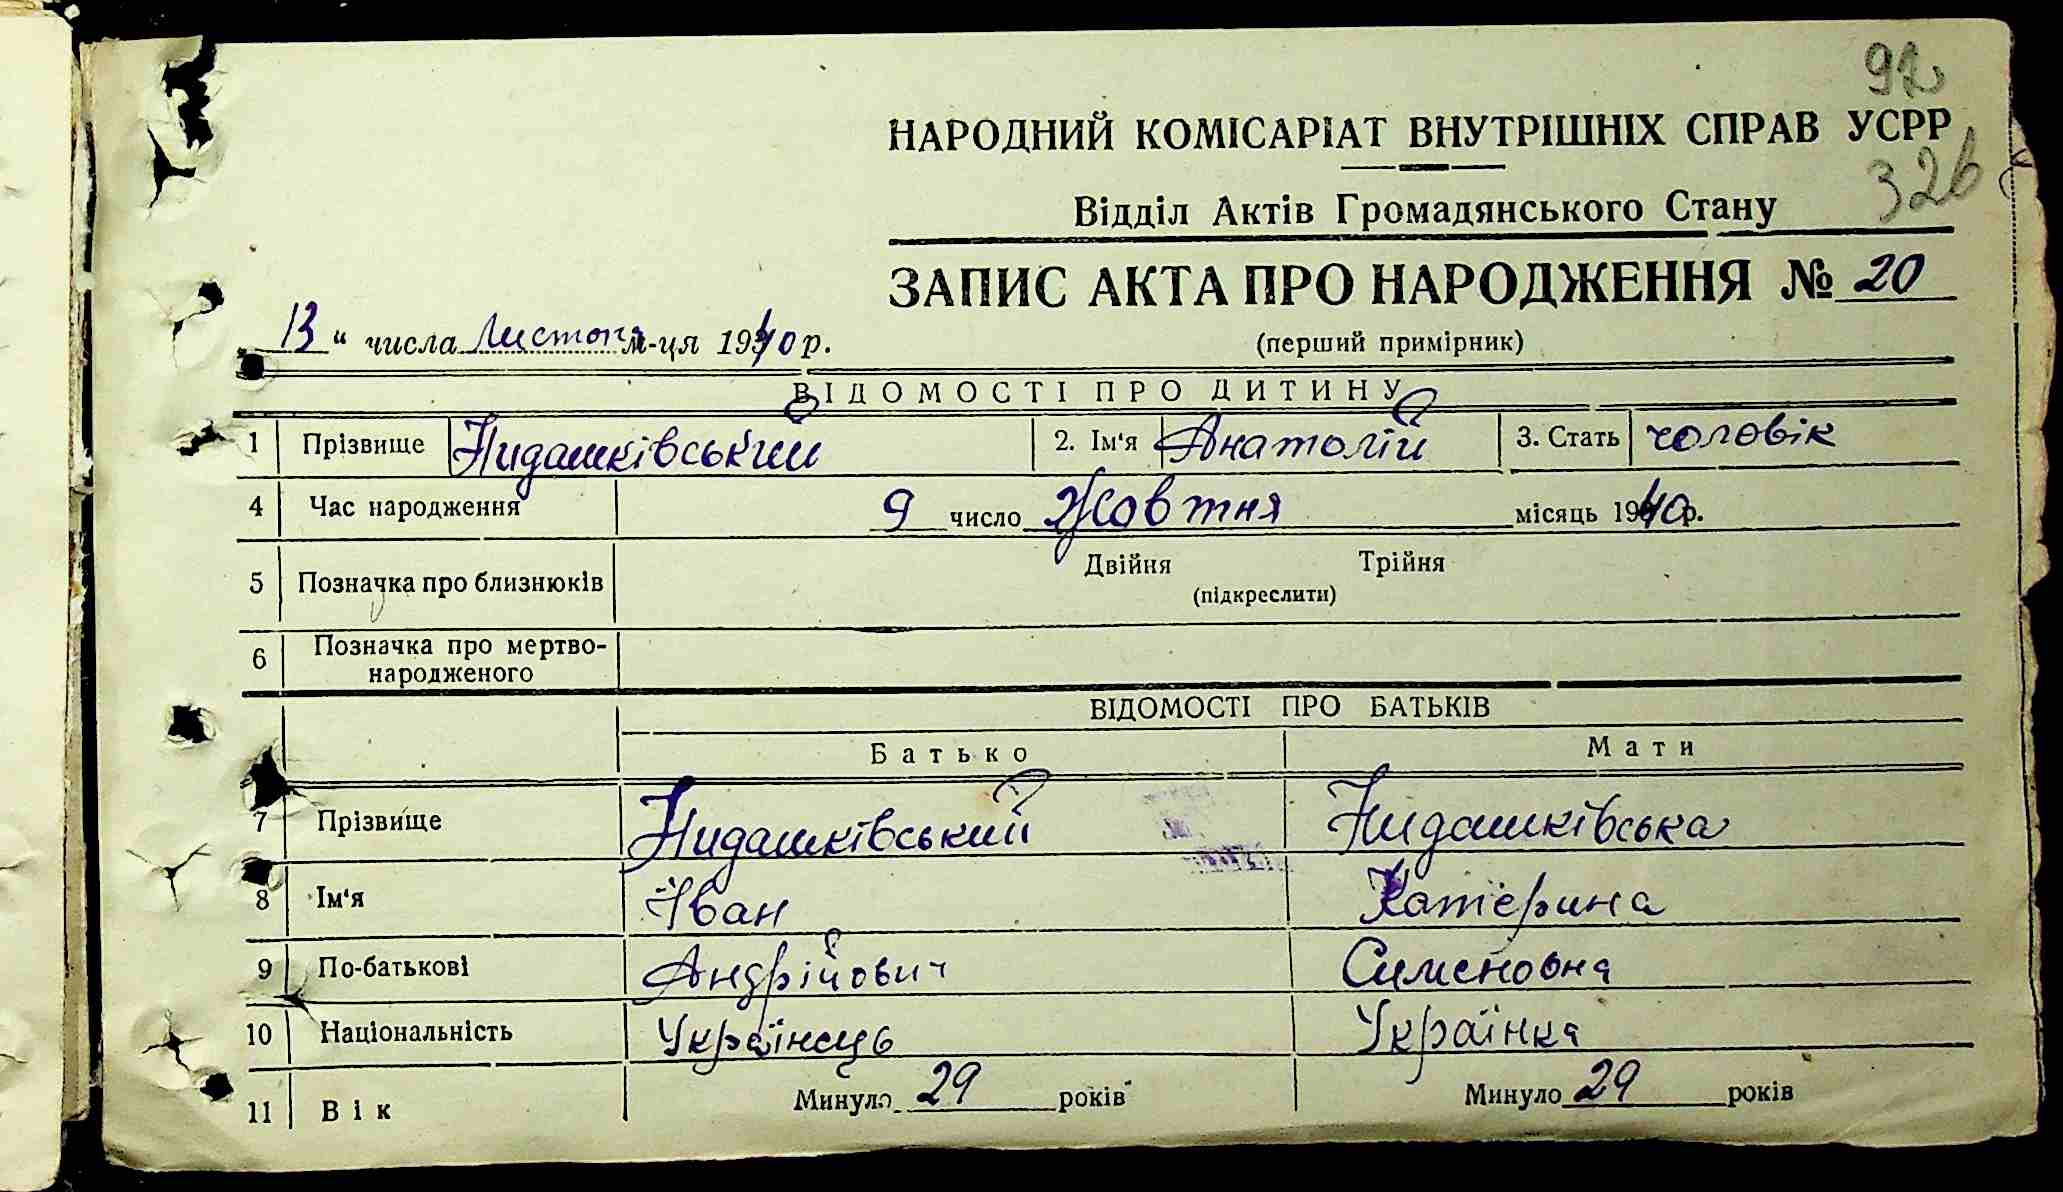 92
НАРОДНИЙ КОМІСАРІАТ ВНУТРІШНІХ СПРАВ УСРР
326
Відділ Актів Громадянського Стану
ЗАПИС АКТА ПРО НАРОДЖЕННЯ № 20
(перший примірник)
„13“ числа Листопа м-ця 1940 р.
ВІДОМОСТІ ПРО ДИТИНУ
1 Прізвище Нидашківський 2. Ім'я Анатолій 3. Стать чоловік
4 Час народження 9 число Жовтня місяць 1940 р.
5 Позначка про близнюків Двійня Трійня
(підкреслити)
6 Позначка про мертво-
народженого
ВІДОМОСТІ ПРО БАТЬКІВ
Батько Мати
7 Прізвище Нидашківський Нидашківська
8 Ім'я Іван Катерина
9 По-батькові Андрійович Сименовна
10 Національність Українець Українка
11 Вік Минуло 29 років Минуло 29 років